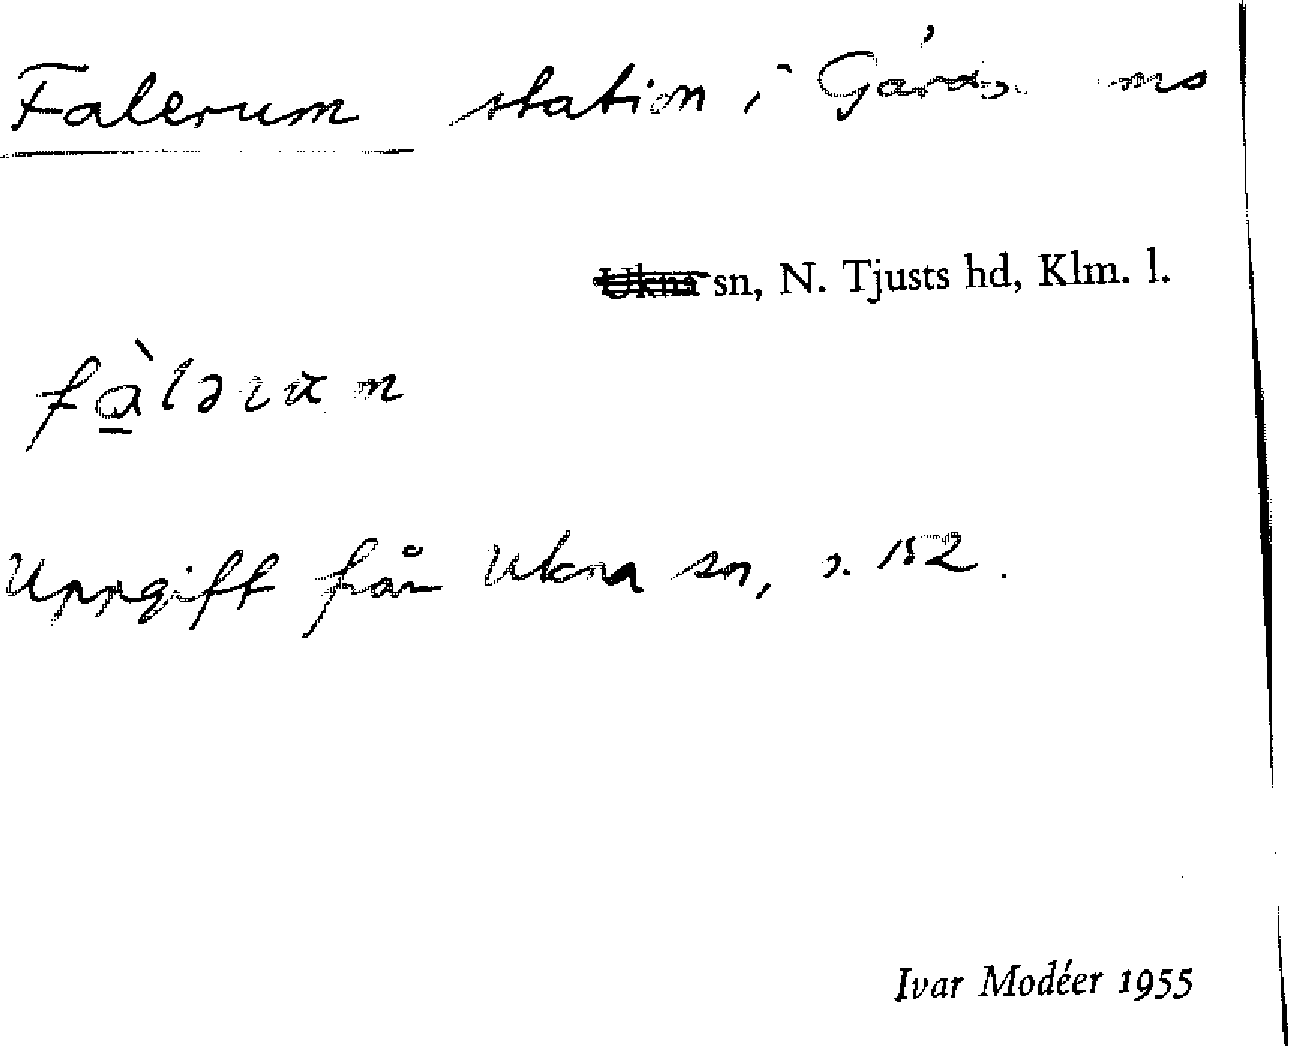 Falerum station i
Ukna sn, N. Tjusts hd, Klm. l.
fàlərum
Uppgift från Ukna sn, s. 152.
Ivar Modéer 1955